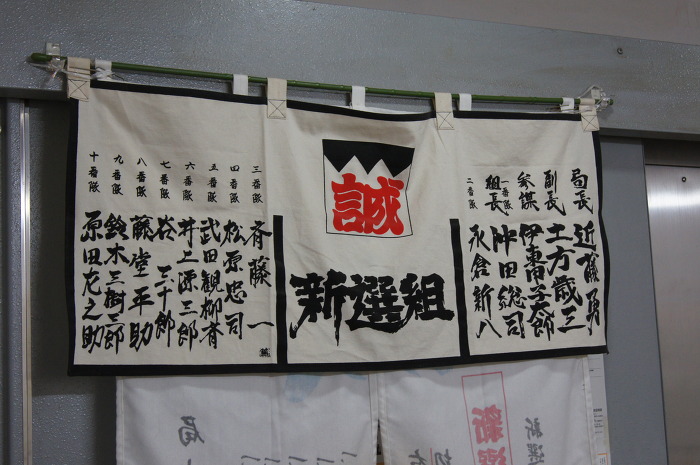 局長 近藤勇
副長 土方歳三
参謀 伊東甲子太郎
組長 一番隊 沖田総司
二番隊 永倉新八
誠
新選組
三番隊 斉藤一
四番隊 松原忠司
五番隊 武田観柳斉
六番隊 井上源三郎
七番隊 谷三十郎
八番隊 藤堂平助
九番隊 鈴木三樹三郎
十番隊 原田左之助
新選
新選
局